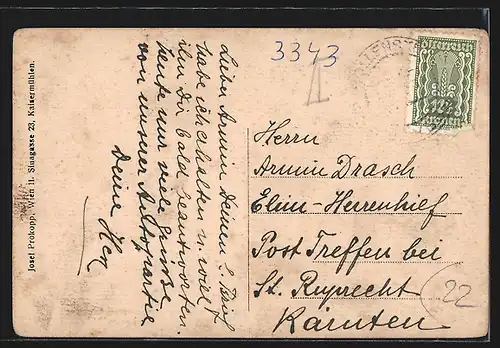 Josef Prokopp, Wien II. Sinagasse 23, Kaisermühlen.
Lieber Armin Deinen L. Brief
habe ich erhalten u. will
ihn Dir bald beantworten.
heute nur viele Grüsse
von unserer Autopartie
Deine
3343
österreich
Kronen
Herrn
Armin Drasch
Elim-Herrenhilf
Post Treffen bei
St. Ruprecht
Kärnten
22